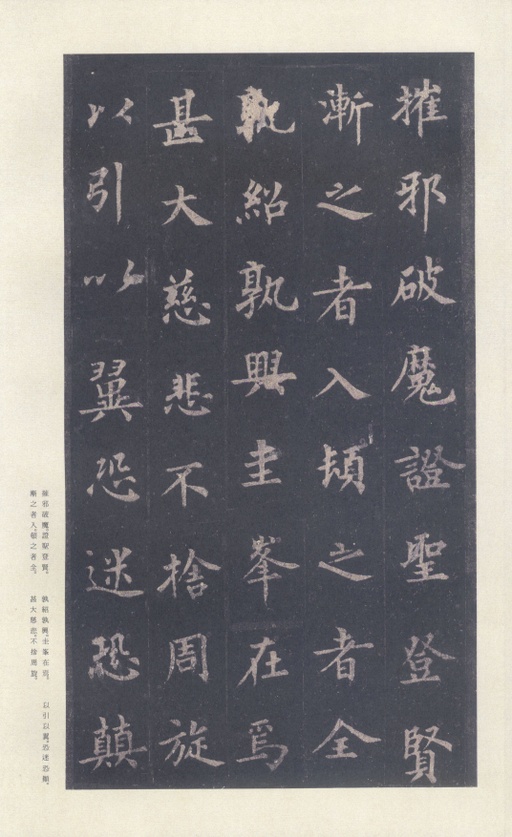 摧邪破魔證聖登賢
漸之者入頓之者全
孰紹孰興圭峯在焉
甚大慈悲不捨周旋
以引以翼恐迷恐顛
摧邪破魔、證聖登賢。
漸之者入、頓之者全。
孰紹孰興、圭峯在焉。
甚大慈悲、不捨周旋。
以引以翼、恐迷恐顛。